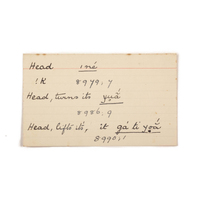 Head iné
!K 8979,7
Head, turns its
8986,9
Head, lifts its, it gá ti
8990,1